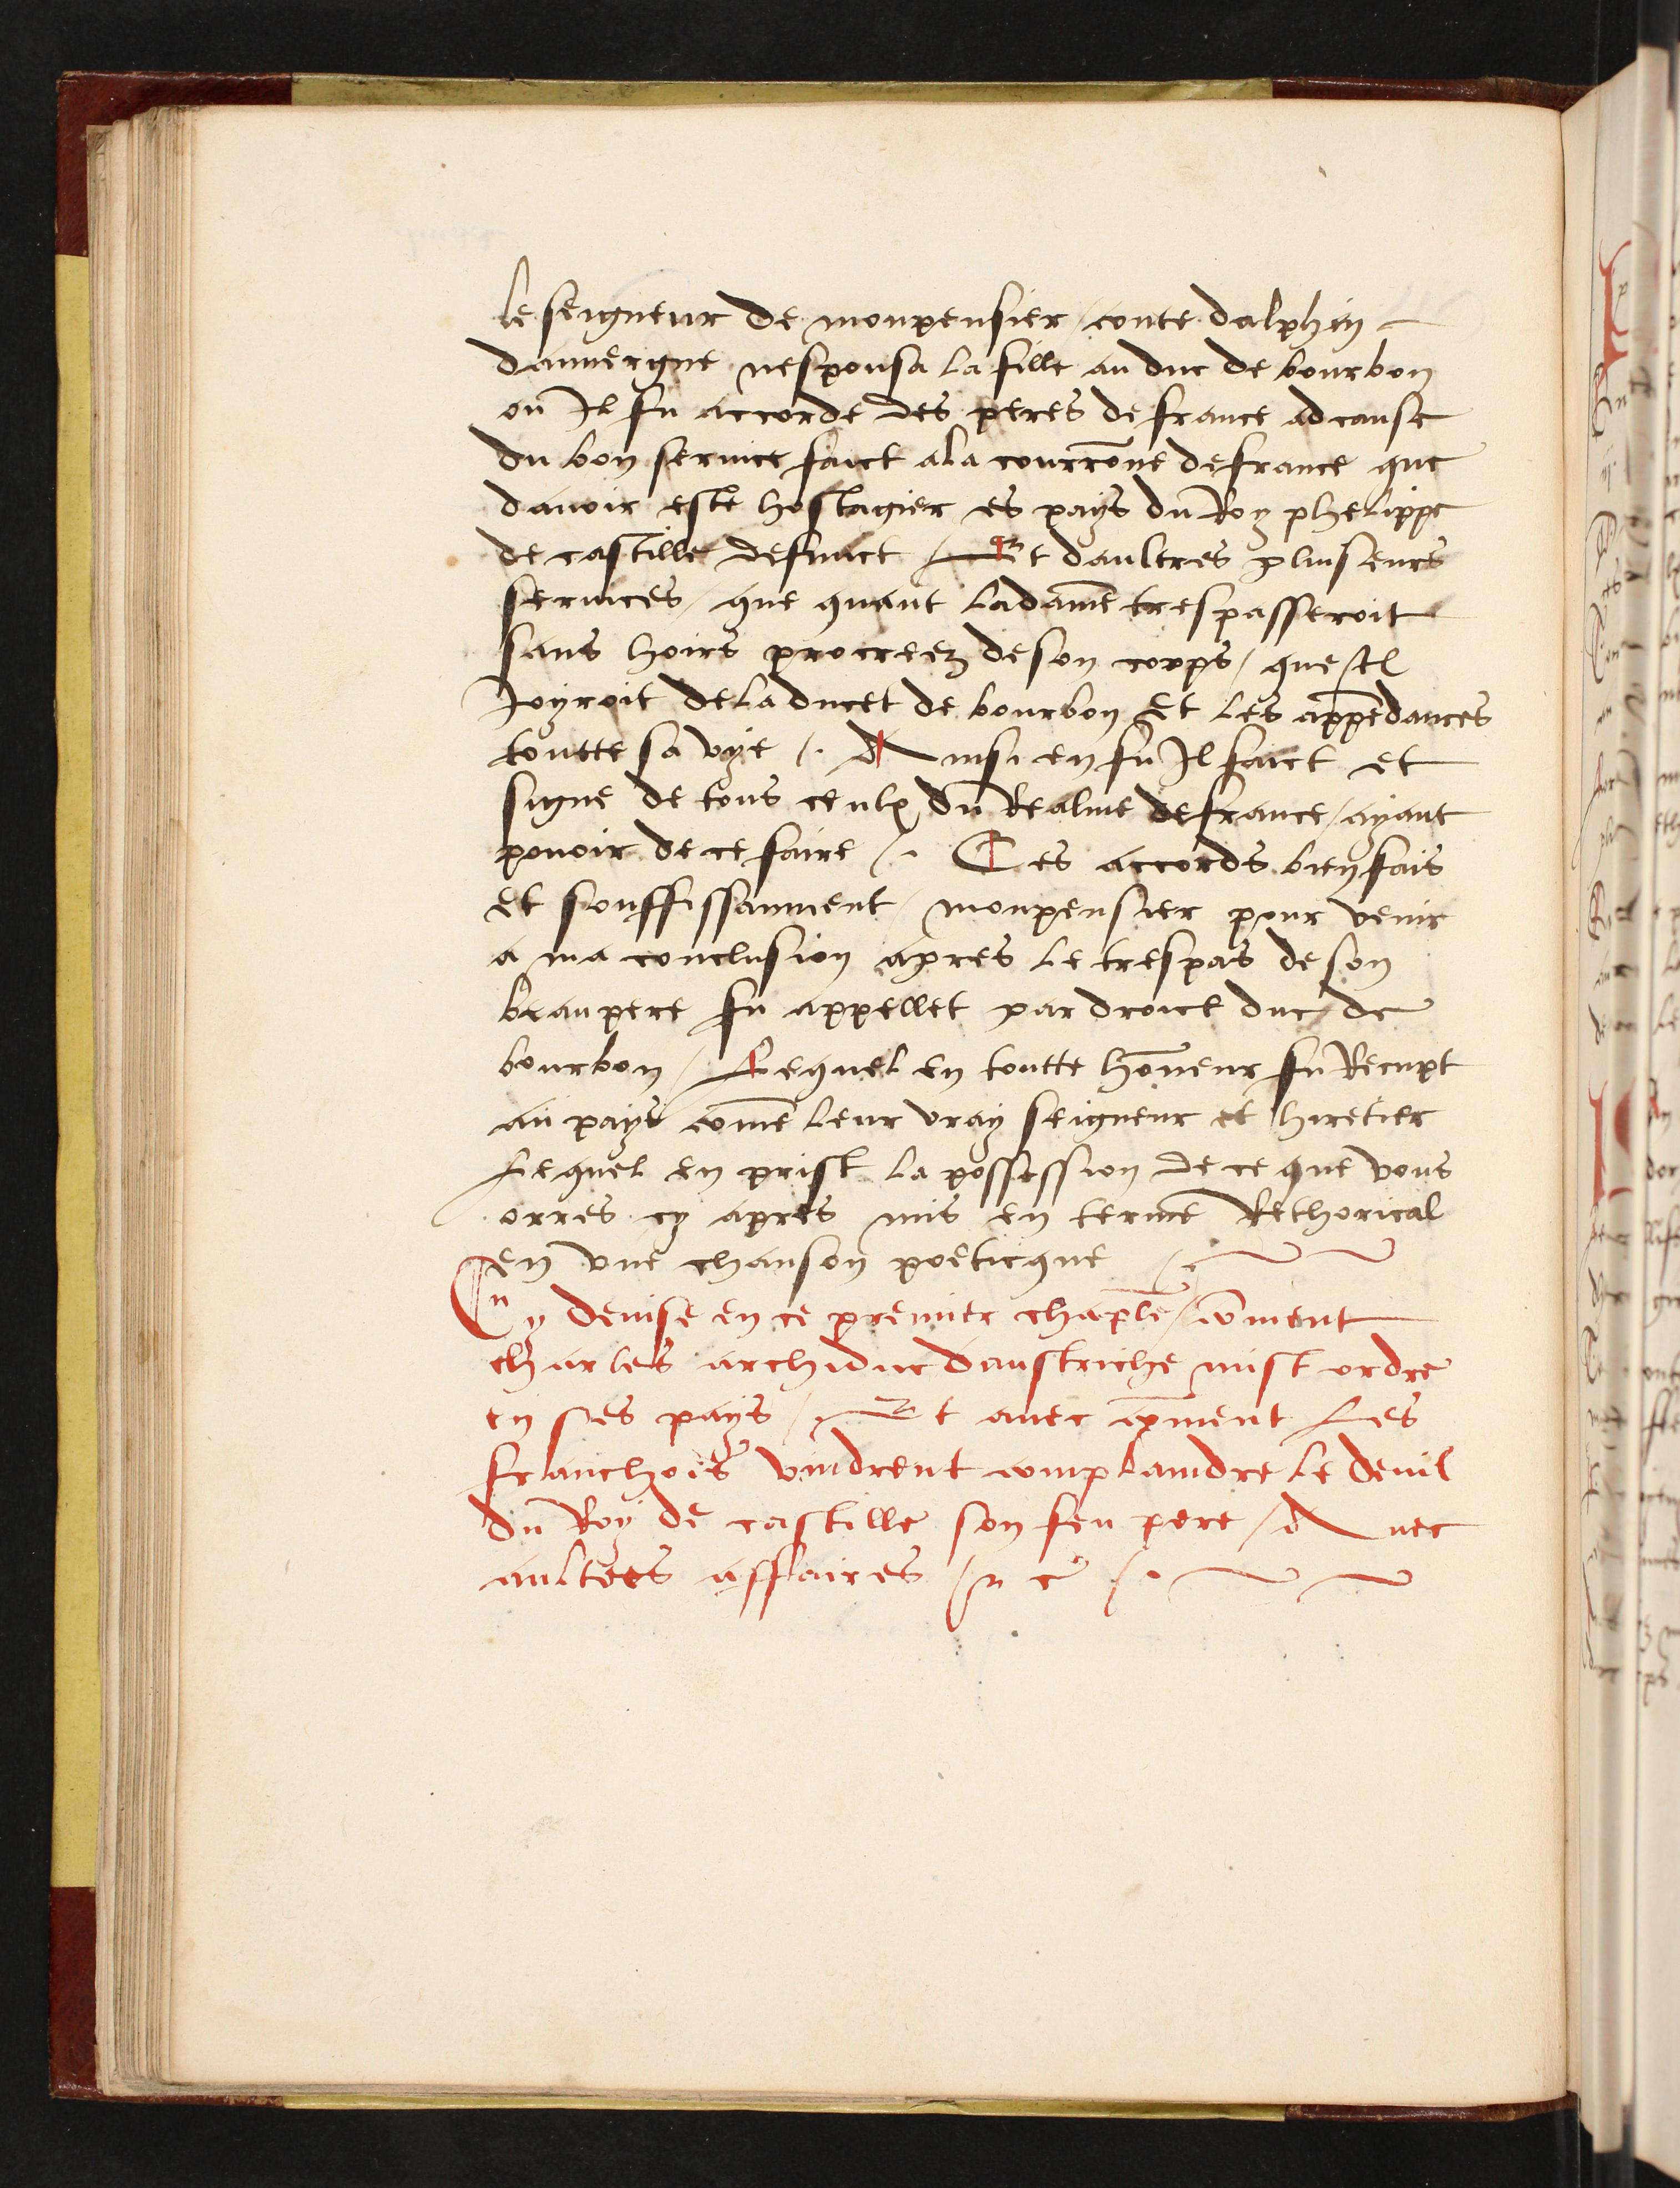 le seigneur de monpensier / conte dalphin
dauuergne nesponsa la fille au duc de bourbon
ou Il fu accorde des peres de france ad cause
du bon seruice faict a la courrōne de france que
dauoir este hostagier es pays du Roy phelippe
de castille deffunct / Et daultres pluiseurs
seruices / que quant la dame trespasseroit
sans hoirs procreez de son corps / que Il
Joyroit de la ducet de bourbon et les appēdances
toutte sa vye /. Ainsi en fu Il faict et
signe de tous ceulx du Realme de france / ayant
pouoir de ce faire /. Ces accords bien fais
et souffissanment / monpensier pour venir
a ma conclusion apres le trespas de son
beau pere fu appellet par droict duc de
bourbon / Lequel en toutte hōneur fu Recupt
au pays cōme leur vray seigneur et hiretier
Lequel en prist la possession de ce que vous
orres cy apres mis en terme Rethorical
en vne chanson poeticque /.
Cy deuise en ce premier chaple / cōment
charles archiduc daustriche mist ordre
en ses pays / Et auec cōment Les
franchois vindrent complaindre le deuil
du Roy de castille son feu pere / Auec
aultres affaires / ⁊ c /.